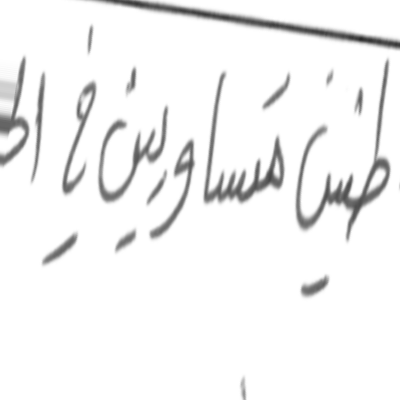 طنين متساويين في